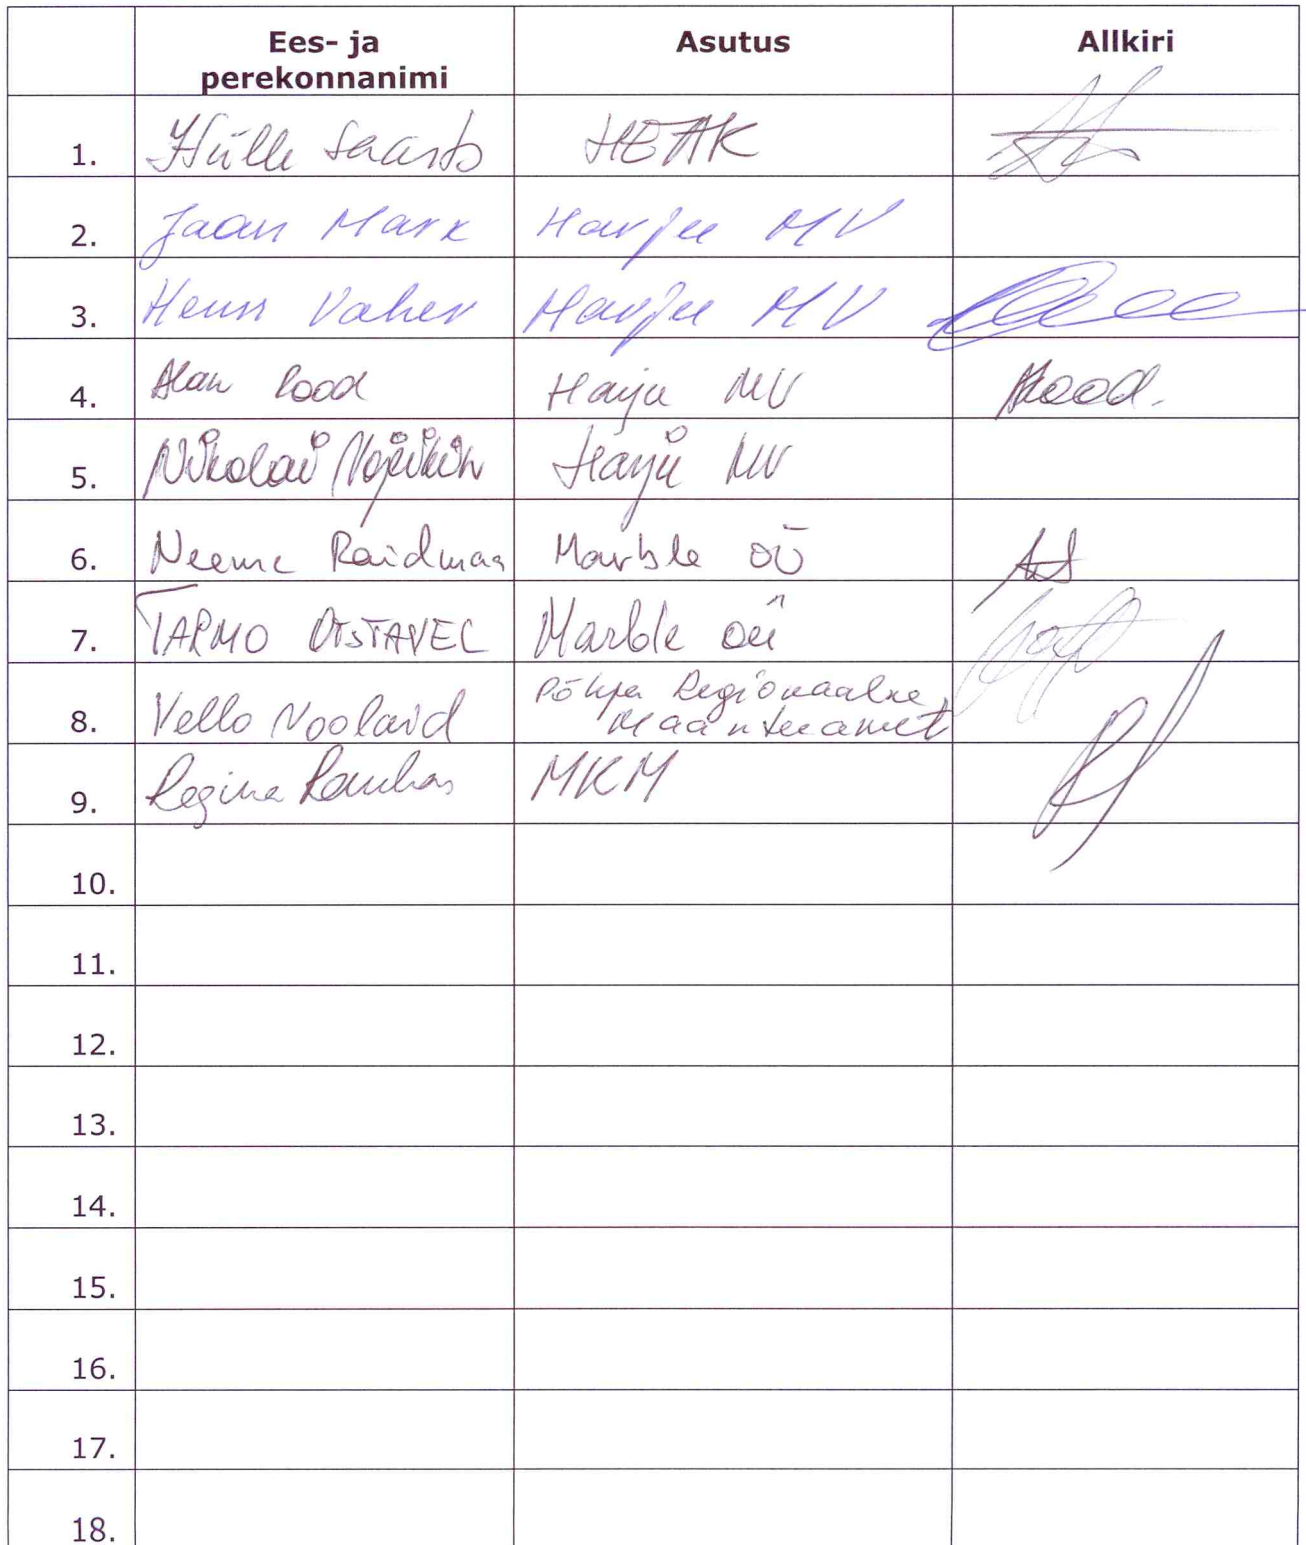 Ees- ja perekonnanimi Asutus Allkiri
1. Hülle Saarts HEAK
2. Jaan Mark Harju MV
3. Henn Vaher Harju MV
4. Alan Rood Harju MV ARood.
5. Nikolai Harju MV
6. Neeme Raidmaa Marble OÜ
7. TARMO OTSTAVEL Marble OÜ
8. Vello Noolaid Põhja Regionaalne
Maanteeamet
9. Regina MKM
10.
11.
12.
13.
14.
15.
16.
17.
18.